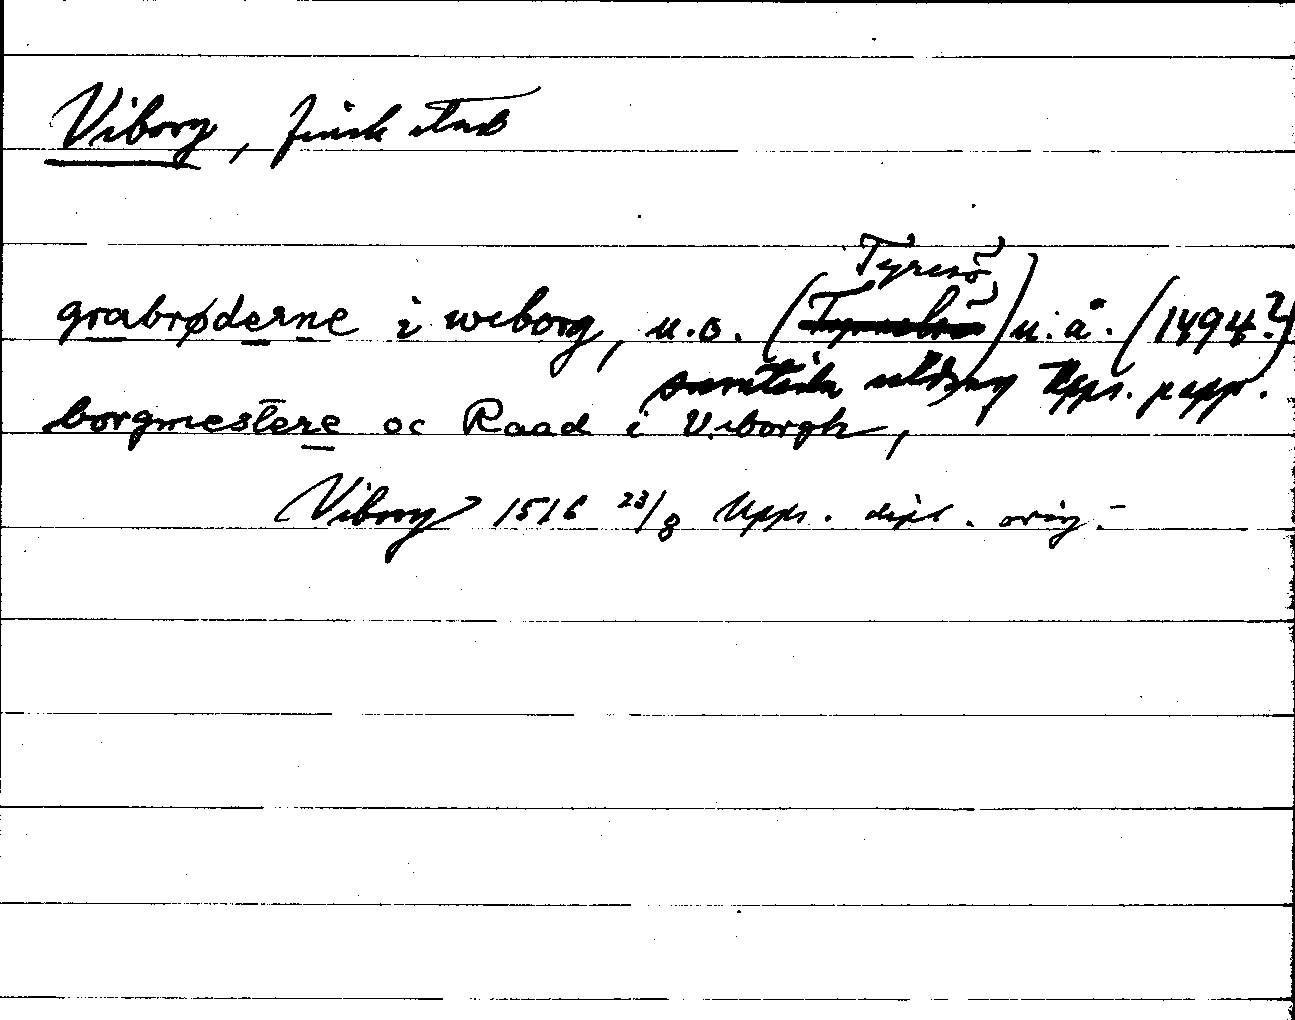 Viborg, finsk stad
Tyresö
grabrøderne i weborg, u.o. ( ) u.å. (1494?)
samtida utdrag Upps. papp.
borgmestere oc Raad i Viborgh,
Viborg 1516 23/8 Upps. dipl. orig.